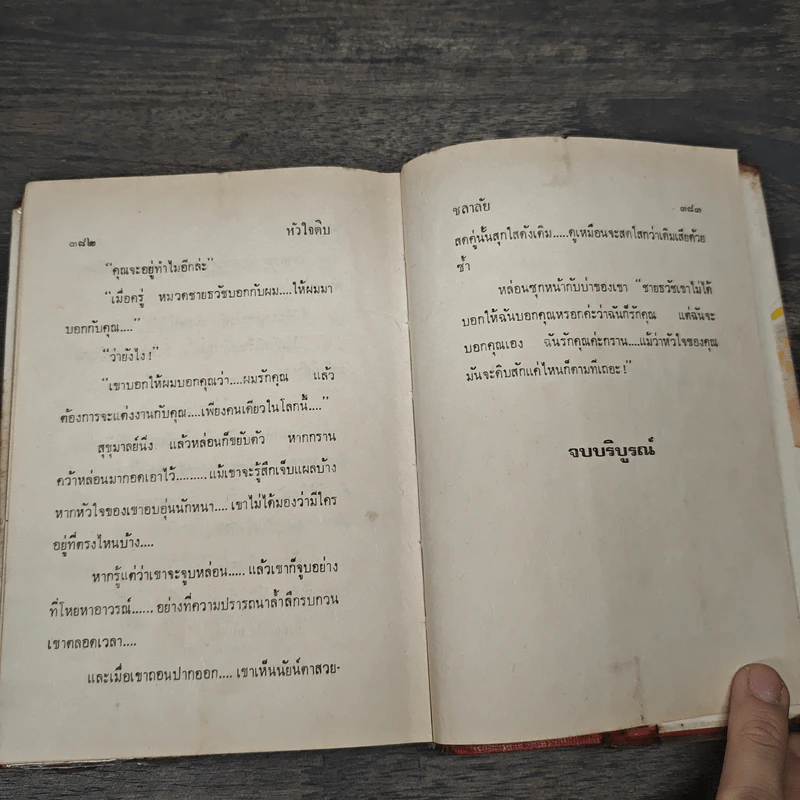 ๓๘๒ หัวใจดิบ
“คุณจะอยู่ทำไมอีกล่ะ”
“เมื่อครู่ หมวดชายธวัชบอกกับผม....ให้ผมมา
บอกกับคุณ....”
“ว่ายังไง !”
“เขาบอกให้ผมบอกคุณว่า....ผมรักคุณ แล้ว
ต้องการจะแต่งงานกับคุณ....เพียงคนเดียวในโลกนี้....”
สุขุมาลย์นิ่ง แล้วหล่อนก็ขยับตัว หากกราน
คว้าหล่อนมากอดเอาไว้.........แม้เขาจะรู้สึกเจ็บแผลบ้าง
หากหัวใจของเขาอบอุ่นนักหนา....เขาไม่ได้มองว่ามีใคร
อยู่ที่ตรงไหนบ้าง....
หากรู้แต่ว่าเขาจะจูบหล่อน.....แล้วเขาก็จูบอย่าง
ที่โหยหาอาวรณ์......อย่างที่ความปรารถนาล้ำลึกรบกวน
เขาตลอดเวลา....
และเมื่อเขาถอนปากออก....เขาเห็นนัยน์ตาสวย-
ชลาลัย ๓๘๓
สดคู่นั้นสุกใสดังเดิม.....ดูเหมือนจะสดใสกว่าเดิมเสียด้วย
ซ้ำ
หล่อนซุกหน้ากับบ่าของเขา “ชายธวัชเขาไม่ได้
บอกให้ฉันบอกคุณหรอกค่ะว่าฉันก็รักคุณ แต่ฉันจะ
บอกคุณเอง ฉันรักคุณค่ะกราน....แม้ว่าหัวใจของคุณ
มันจะดิบสักแค่ไหนก็ตามทีเถอะ !”
จบบริบูรณ์